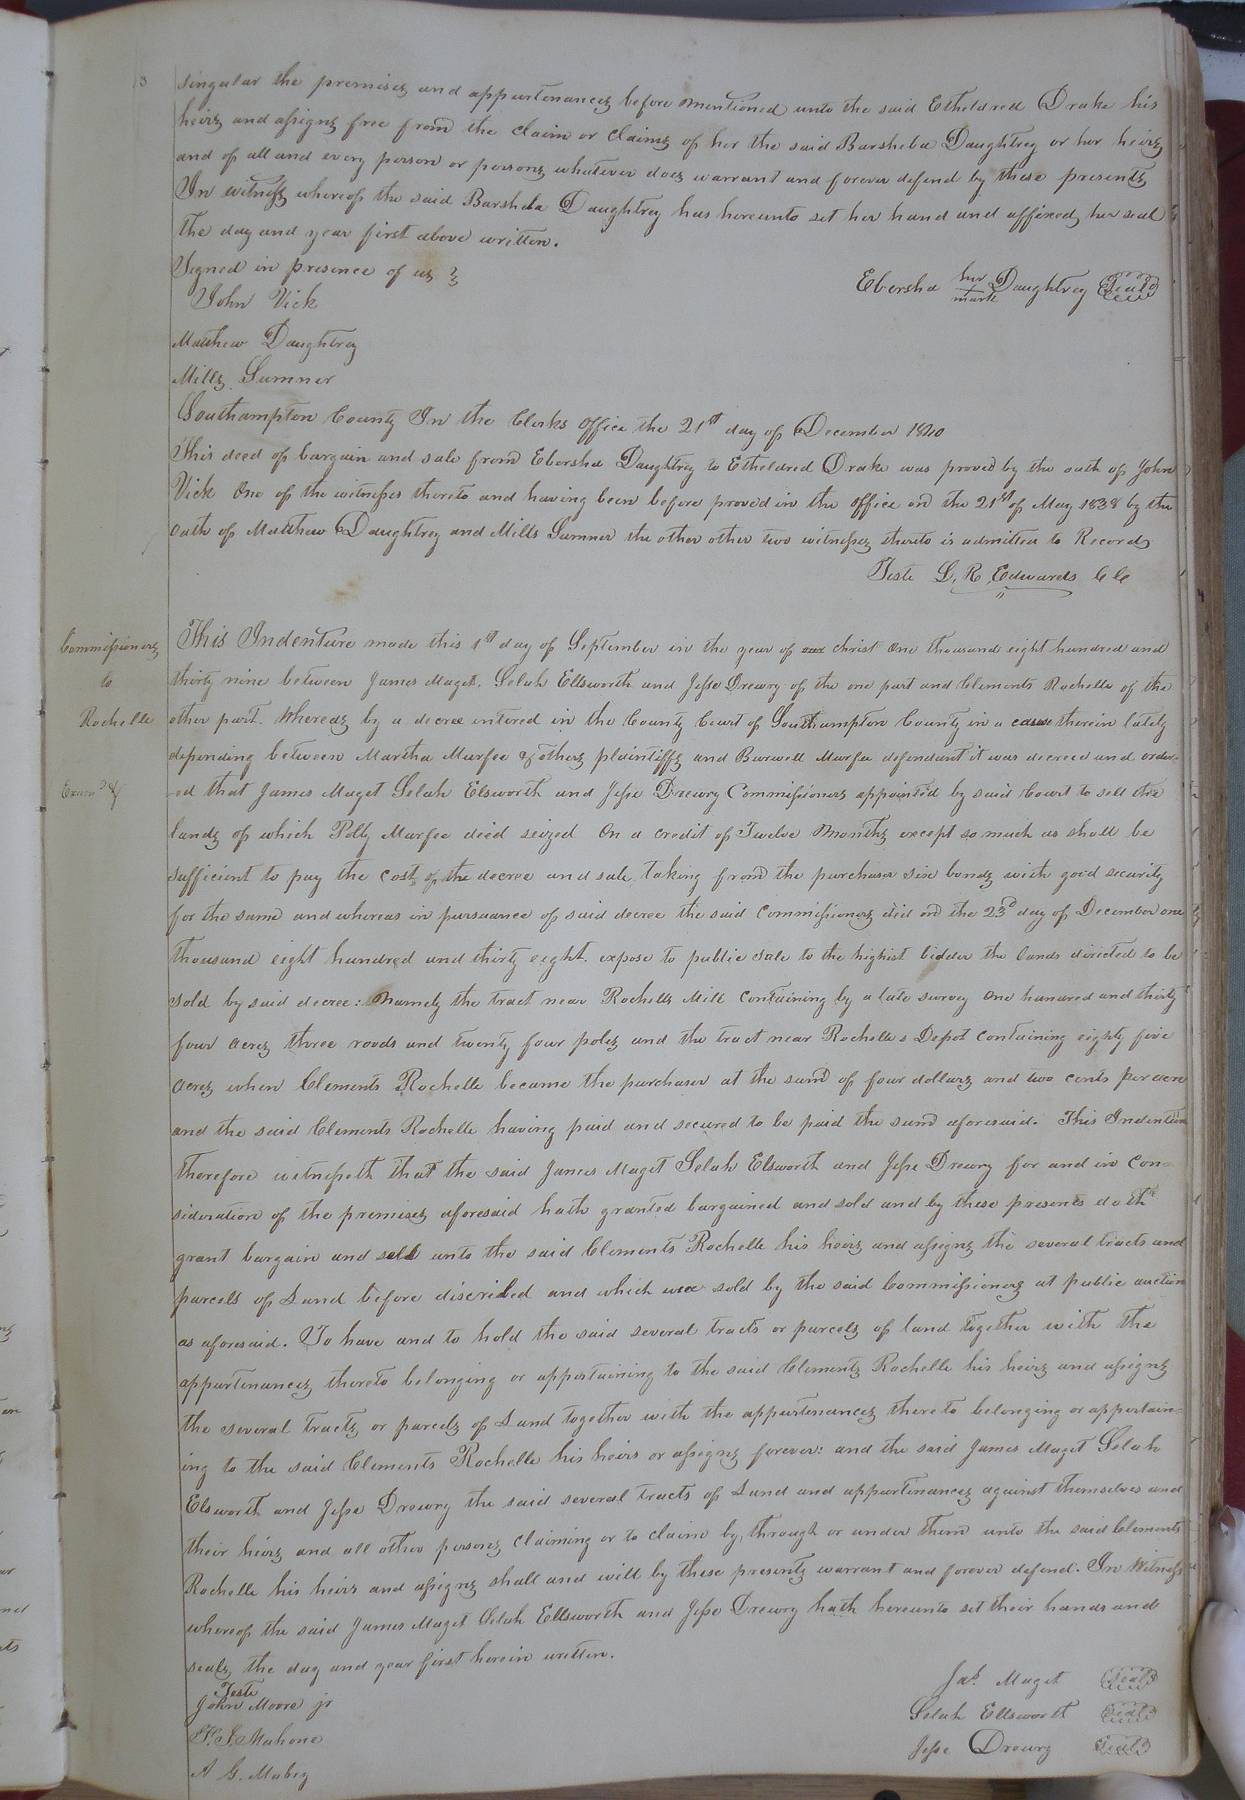 singular the premises and appurtenances before mentioned unto the said Etheldred Drake his
heirs and assigns free from the claim or claims of her the said Barsheba Daughtrey or her heirs
and of all and every person or persons whatever does warrant and forever defend by these presents
In witness whereof the said Barsheba Daughtrey has hereunto set her hand and affixed her seal
the day and year first above written.
Signed in presence of us
Ebersha her mark Daughtrey Seal
John Vick
Matthew Daughtrey
Mills Sumner
Southampton County In the Clerks office the 21st day of December 1840
This deed of bargain and sale from Ebersha Daughtrey to Etheldred Drake was proved by the oath of John
Vick One of the witnesses thereto and having been before proved in the office on the 21st of May 1838 by the
oath of Matthew Daughtrey and Mills Sumner the other other two witnesses thereto is admitted to Record
Teste L. R. Edwards CC
Commissioners
to
Rochelle
This Indenture made this 1st day of September in the year of our christ One thousand eight hundred and
thirty nine between James Maget. Selah Ellsworth and Jesse Drewry of the one part and Clements Rochelle of the
other part. Whereas by a decree entered in the County Court of Southampton County in a cause therein lately
depending between Martha Murfee & others plaintiffs and Burwell Murfee defendant it was decreed and order-
Examd &
-ed that James Maget Selah Elsworth and Jesse Drewry Commissioners appointed by said Court to sell the
lands of which Polly Murfee died seized On a credit of Twelve Months except so much as shall be
sufficient to pay the costs of the decree and sale, taking from the purchaser six bonds with good security
for the same and whereas in pursuance of said decree the said Commissioners did on the 23d day of December one
thousand eight hundred and thirty eight. expose to public sale to the highest bidder the lands directed to be
sold by said decree: Namely the tract near Rochells Mill Containing by a late survey One hundred and thirty
four acres three roods and twenty four poles and the tract near Rochelles Depot Containing eighty five
acres when Clements Rochelle became the purchaser at the sum of four dollars and two cents per acre
and the said Clements Rochelle having paid and secured to be paid the sum aforesaid. This Indenture
therefore witnesseth that the said James Maget Selah Elsworth and Jesse Drewry for and in con-
sideration of the premises aforesaid hath granted bargained and sold and by these presents doth
grant bargain and sell unto the said Clements Rochelle his heirs and assigns the several tracts and
parcels of Land before discribed and which were sold by the said Commissioners at public auction
as aforesaid. To have and to hold the said several tracts or parcels of land together with the
appurtenances thereto belonging or appertaining to the said Clements Rochelle his heirs and assigns
the several tracts or parcels of Land together with the appurtenances thereto belonging or appertain-
ing to the said Clements Rochelle his heirs or assigns forever: and the said James Maget Selah
Elsworth and Jesse Drewry the said several tracts of Land and appurtenances against themselves and
their heirs and all other persons claiming or to claim by, through or under them unto the said Clements
Rochelle his heirs and assigns shall and will by these presents warrant and forever defend. In Witness
whereof the said James Maget Selah Ellsworth and Jesse Drewry hath hereunto set their hands and
seals the day and year first herein written.
Teste
Jas. Maget Seal
John Moore jr
Selah Ellsworth Seal
Mahone
Jesse Drewry Seal
A G. Mabry